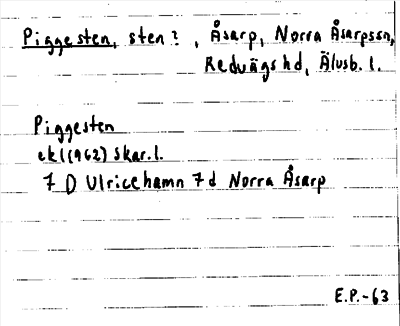 Piggesten, sten?, Åsarp, Norra Åsarpssn,
Redvägs hd, Älvsb. l.
Piggesten
ekl(1962) Skar. l.
7 D Ulricehamn 7 d Norra Åsarp
E.P.-63